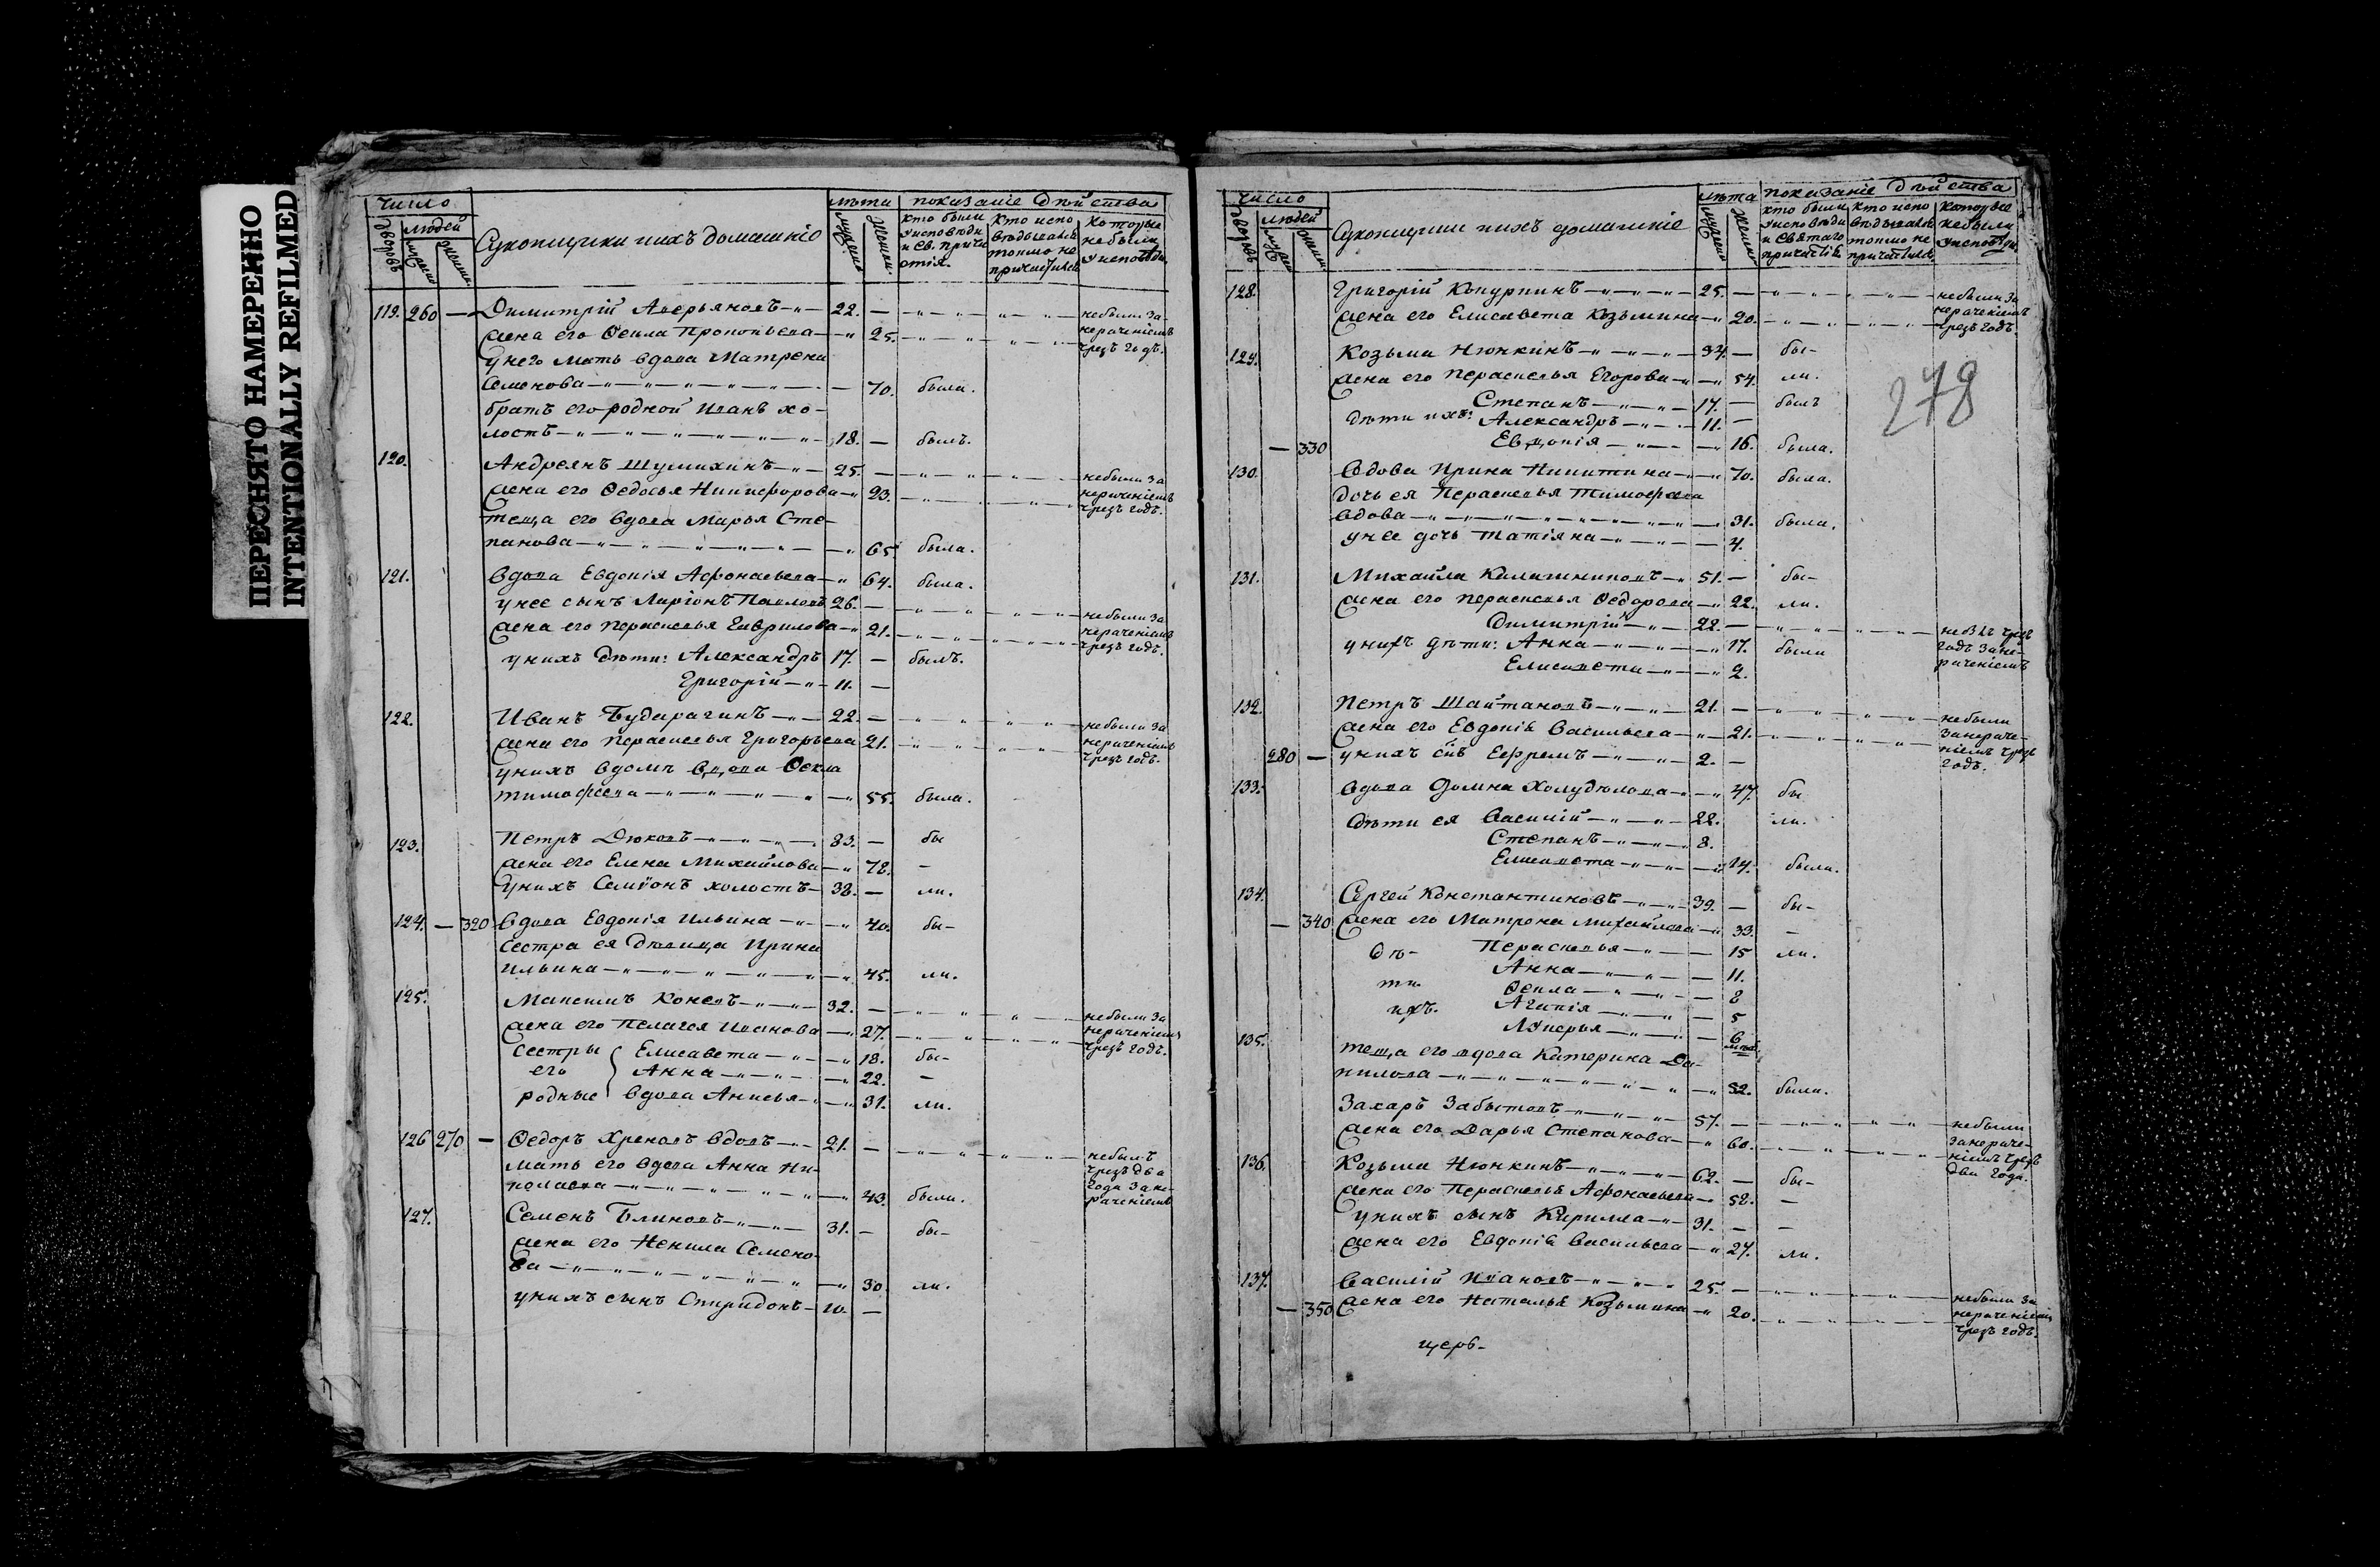 ПЕРЕСНЯТО НАМЕРЕННО
INTENTIONALLY REFILMED
число лѣта показаніе дѣйства
дворовъ людей мужеска женска кто были у исповѣди и Св. причастія. кто исповѣдывался токмо не причастился которые не были у исповѣди
и ихъ домашніе
119. 260 — Димитрій Аверьяновъ 22. — небыли за
жена его Ѳекла Прокопьева 25. нераченіемъ
у него мать вдова Матрена чрезъ годъ.
Семенова — 70. была.
братъ его родной Иванъ хо-
лостъ 18. — былъ.
120. Андреянъ Шумихинъ 25. — небыли за
жена его Ѳедосья Никифорова 23. нераченіемъ
теща его вдова Марья Сте- чрезъ годъ.
панова 65. была.
121. вдова Евдокія Афонасьева 64. была.
у нее сынъ Ларіонъ Павловъ 26. — небыли за
жена его Перасковья Гаврилова 21. нераченіемъ
чрезъ годъ.
у нихъ дѣти: Александръ 17. — былъ.
Григорій 11. —
122. Иванъ Бударагинъ 22. — небыли за
жена его Перасковья Григорьева 21. нераченіемъ
у нихъ вдомѣ вдова Ѳекла чрезъ годъ.
тимофеева 55. была.
123. Петръ Дюковъ 83. — бы
жена его Елена Михайлова 72. —
у нихъ Семіонъ холостъ 38. — ли.
124. — 320 вдова Евдокія Ильина 40. бы-
сестра ея дѣвица Ирина
Ильина 45. ли.
125. Максимъ Коневъ 32. — небыли за
жена его Пелагея Иванова 27. нераченіемъ
сестры Елисавета 18. бы- чрезъ годъ.
его Анна 22. —
родные вдова Анисья 31. ли.
126 270 — Ѳедоръ Хреновъ вдовъ 21. — небылъ
мать его вдова Анна Ни- чрезъ два
колаева 43. была. года за не-
раченіемъ
127. Семенъ Блиновъ 31. — бы-
жена его Ненила Семено-
ва 30. ли.
у нихъ сынъ Спиридонъ 10. —
число лѣта показаніе дѣйства
дворовъ людей кто были у исповѣди и святаго причастія кто исповѣдывался токмо не причастился которые не были у исповѣди
и ихъ домашніе
128. Григорій 25. — небыли за
жена его Елисавета Козьмина 20. нераченіемъ
чрезъ годъ.
278
129. Козьма Нюнкинъ 34. — бы-
жена его Перасковья Егорова 54. ли.
Степанъ 17. — былъ
дѣти ихъ: Александръ 11. —
— 330 Евдокія 16. была.
130. вдова Ирина Никитина 70. была.
дочь ея Перасковья Тимофеева
вдова 31. была.
у нее дочь Татіяна 4.
131. Михайла Калашниковъ 51. — бы-
жена его Перасковья Ѳедорова 22. ли.
Димитрій 22. — небылъ чрезъ
у нихъ дѣти: Анна 17. была годъ за не-
Елисавета 2. раченіемъ
132. Петръ Шайтановъ 21. — небыли
жена его Евдокія Васильева 21. за нераче-
280 — у нихъ Ефремъ 2. — ніемъ чрезъ
годъ.
133. вдова Домна Холудюлова 47. бы
дѣти ея Василій 22. ли.
Степанъ 8.
Елисавета 14. была.
134. Сергей Константиновъ 39. — бы-
— 340 жена его Матрона Михайлова 33. —
дѣ- Перасковья 15 ли.
Анна 11.
ти Ѳекла 8
ихъ. Агапія 5
Лукерья 6
135. теща его вдова Катерина Да-
нилова 82. была.
Захаръ Забытовъ 57. — небыли
жена его Дарья Степанова 60. за нераче-
ніемъ чрезъ
два года.
136. Козьма Нюнкинъ 62. — бы-
жена его Перасковья Афонасьева 58. —
у нихъ сынъ Кирилла 31. — —
жена его Евдокія Васильева 27. ли.
137. Василій Ивановъ 25. — небыли за
— 350 жена его Наталья Козьмина 20. нераченіемъ
чрезъ годъ.
церк-